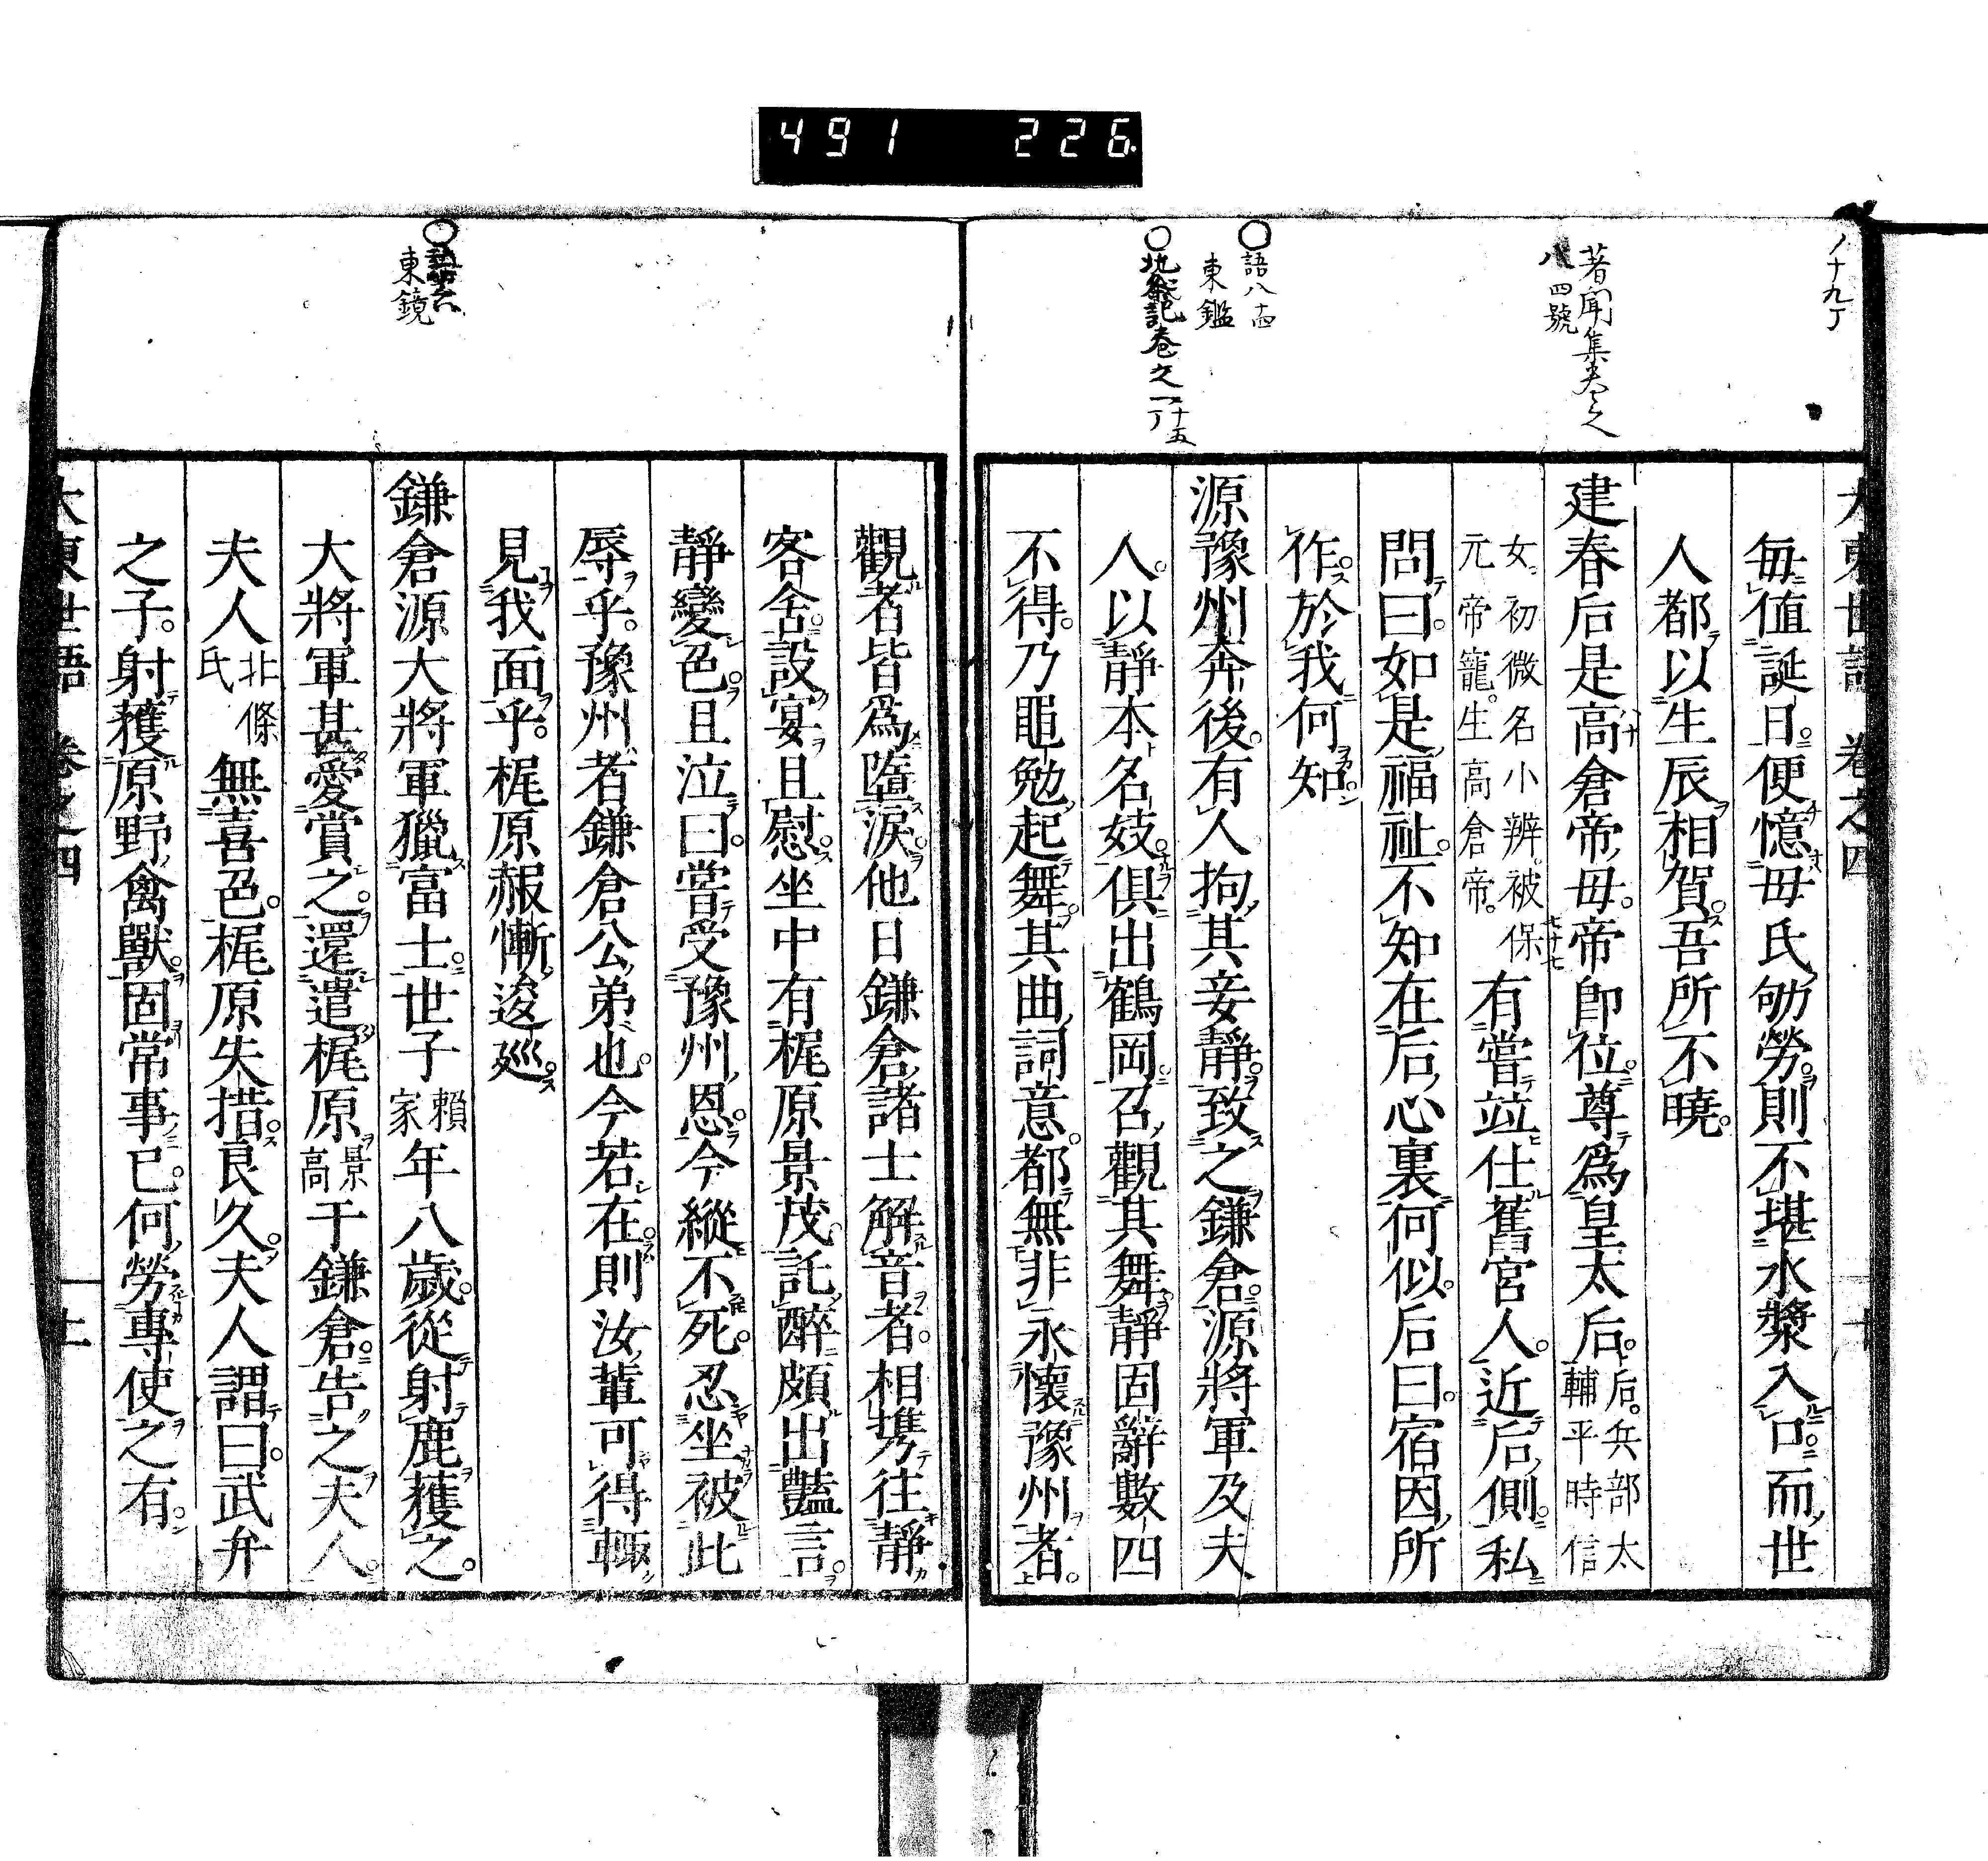 491 226.
ノ十九丁
著聞集巻之
八 四號
○語八 十四
東鑑
○
巻之一 十五丁
大東世語 卷之四 十
毎值誕日。便憶母氏劬勞。則不堪水漿入口。而世
人都以生辰相賀。吾所不曉。
建春后是高倉帝母。帝卽位。尊爲皇太后。后。兵部太輔平時信
女。初微名小辨。被保元帝寵。生高倉帝。有嘗竝仕舊宮人。近后側。私
問曰。如是福祉。不知在后心裏何似。后曰。宿因所
作。於我何知
源豫州奔後。有人拘其妾靜。致之鎌倉。源將軍及夫
人。以靜本名妓。俱出鶴岡。召觀其舞。靜固辭數四
不得。乃黽勉起舞。其曲詞意。都無非永懷豫州者。
觀者皆爲墮淚。他日鎌倉諸士解音者。相携往靜
客舍。設宴且慰。坐中有梶原景茂。託醉頗出豔言。
靜變色。且泣曰。嘗受豫州恩。今縱不死。忍坐被此
辱乎。豫州者鎌倉公弟也。今若在。則汝輩可得輙
見我面乎。梶原赧慚逡巡。
鎌倉源大將軍獵富士。世子賴家年八歲。從射鹿獲之。
大將軍甚愛賞之。還遣梶原景高于鎌倉。告之夫人。
夫人北條氏無喜色。梶原失措。良久。夫人謂曰。武弁
之子。射獲原野禽獸。固常事已。何勞專使之有。
大東世語 卷之四
東鏡